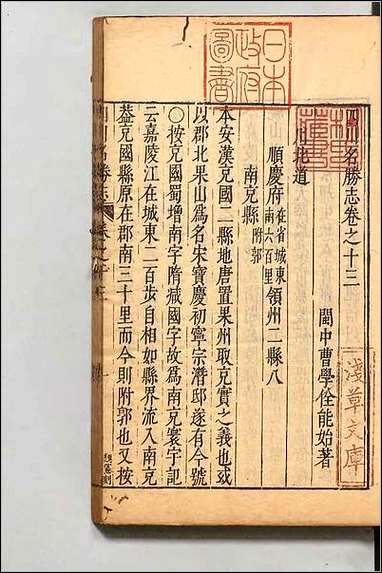 日本
政府
圖書
林氏
藏書
淺草文庫
四川名勝志卷之十三
閩中曹學佺能始著
川北道
順慶府在省城東南六百里領州二縣八
南充縣附郭
本安漢充國二縣地唐置果州取充實之義也或
以郡北果山爲名宋寶慶初寧宗潛邸遂有今號
○按充國蜀增南字隋減國字故爲南充寰宇記
云嘉陵江在城東二百步自相如縣界流入南充
葢充國縣原在郡南三十里而今則附郭也又按
四川名勝志
卷之十三